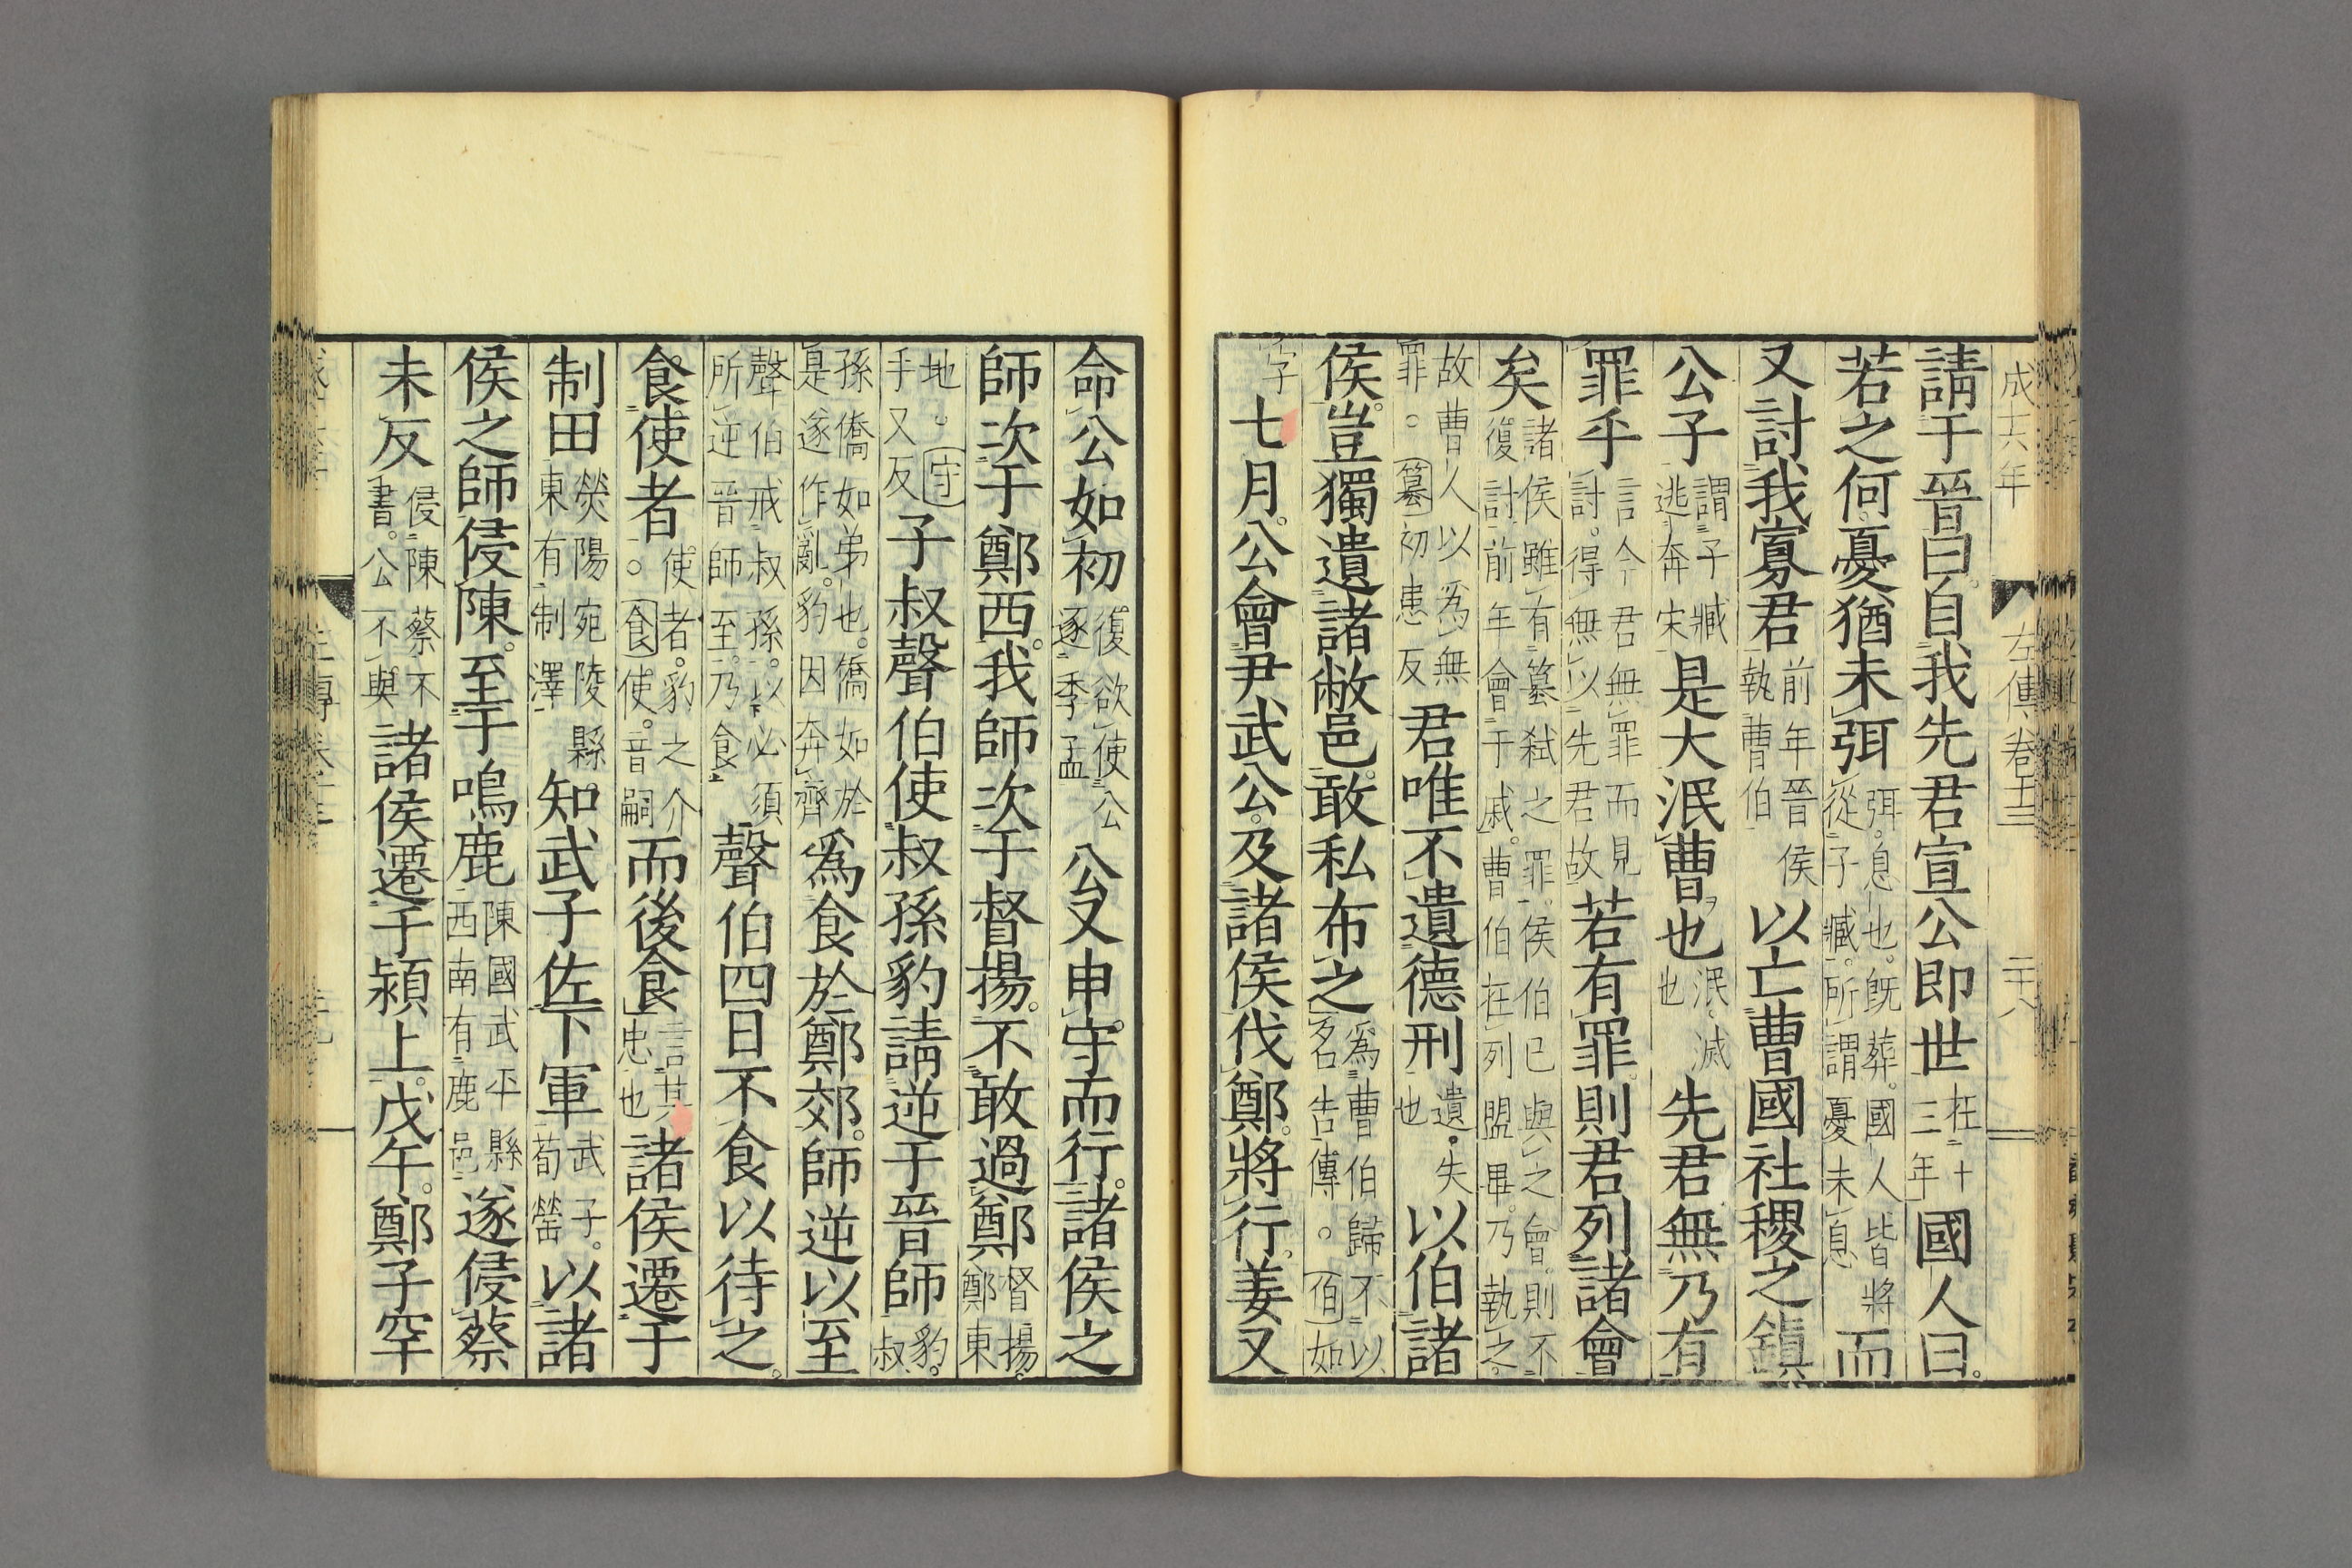 成十六年 左傳卷十三 二十八
請于晉曰。自我先君宣公即世在十三年國人曰。
若之何憂猶未弭弭。息也。既葬。國人皆將從子臧。所謂憂未息而
又討我寡君前年晉侯執曹伯以亡曹國社稷之鎮
公子謂子臧逃奔宋是大泯曹也泯。滅也先君無乃有
罪乎言今君無罪而見討。得無以先君故若有罪。則君列諸會
矣諸侯雖有篡弒之罪。侯伯已與之會。則不復討。前年會于戚。曹伯在列。盟畢。乃執之。
故曹人以爲無罪。篡初患反君唯不遺德刑遺。失也以伯諸
侯。豈獨遺諸敝邑。敢私布之爲曹伯歸不以名告傳。伯如
字七月。公會尹武公。及諸侯伐鄭。將行。姜又
命公如初復欲使公逐季孟公又申守而行。諸侯之
師次于鄭西。我師次于督揚。不敢過鄭督揚。鄭東
地。守手又反子叔聲伯使叔孫豹請逆于晉師豹。叔
孫僑如弟也。僑如於是遂作亂。豹因奔齊爲食於鄭郊。師逆以至
聲伯戒叔孫。以必須所逆晉師至。乃食聲伯四日不食以待之。
食使者使者。豹之介。食使。音嗣而後食言其忠也諸侯遷于
制田熒陽宛陵縣東有制澤知武子佐下軍武子。荀罃以諸
侯之師侵陳。至于鳴鹿陳國武平縣西南有鹿邑遂侵蔡
未反侵陳蔡不書。公不與諸侯遷于潁上。戊午。鄭子罕